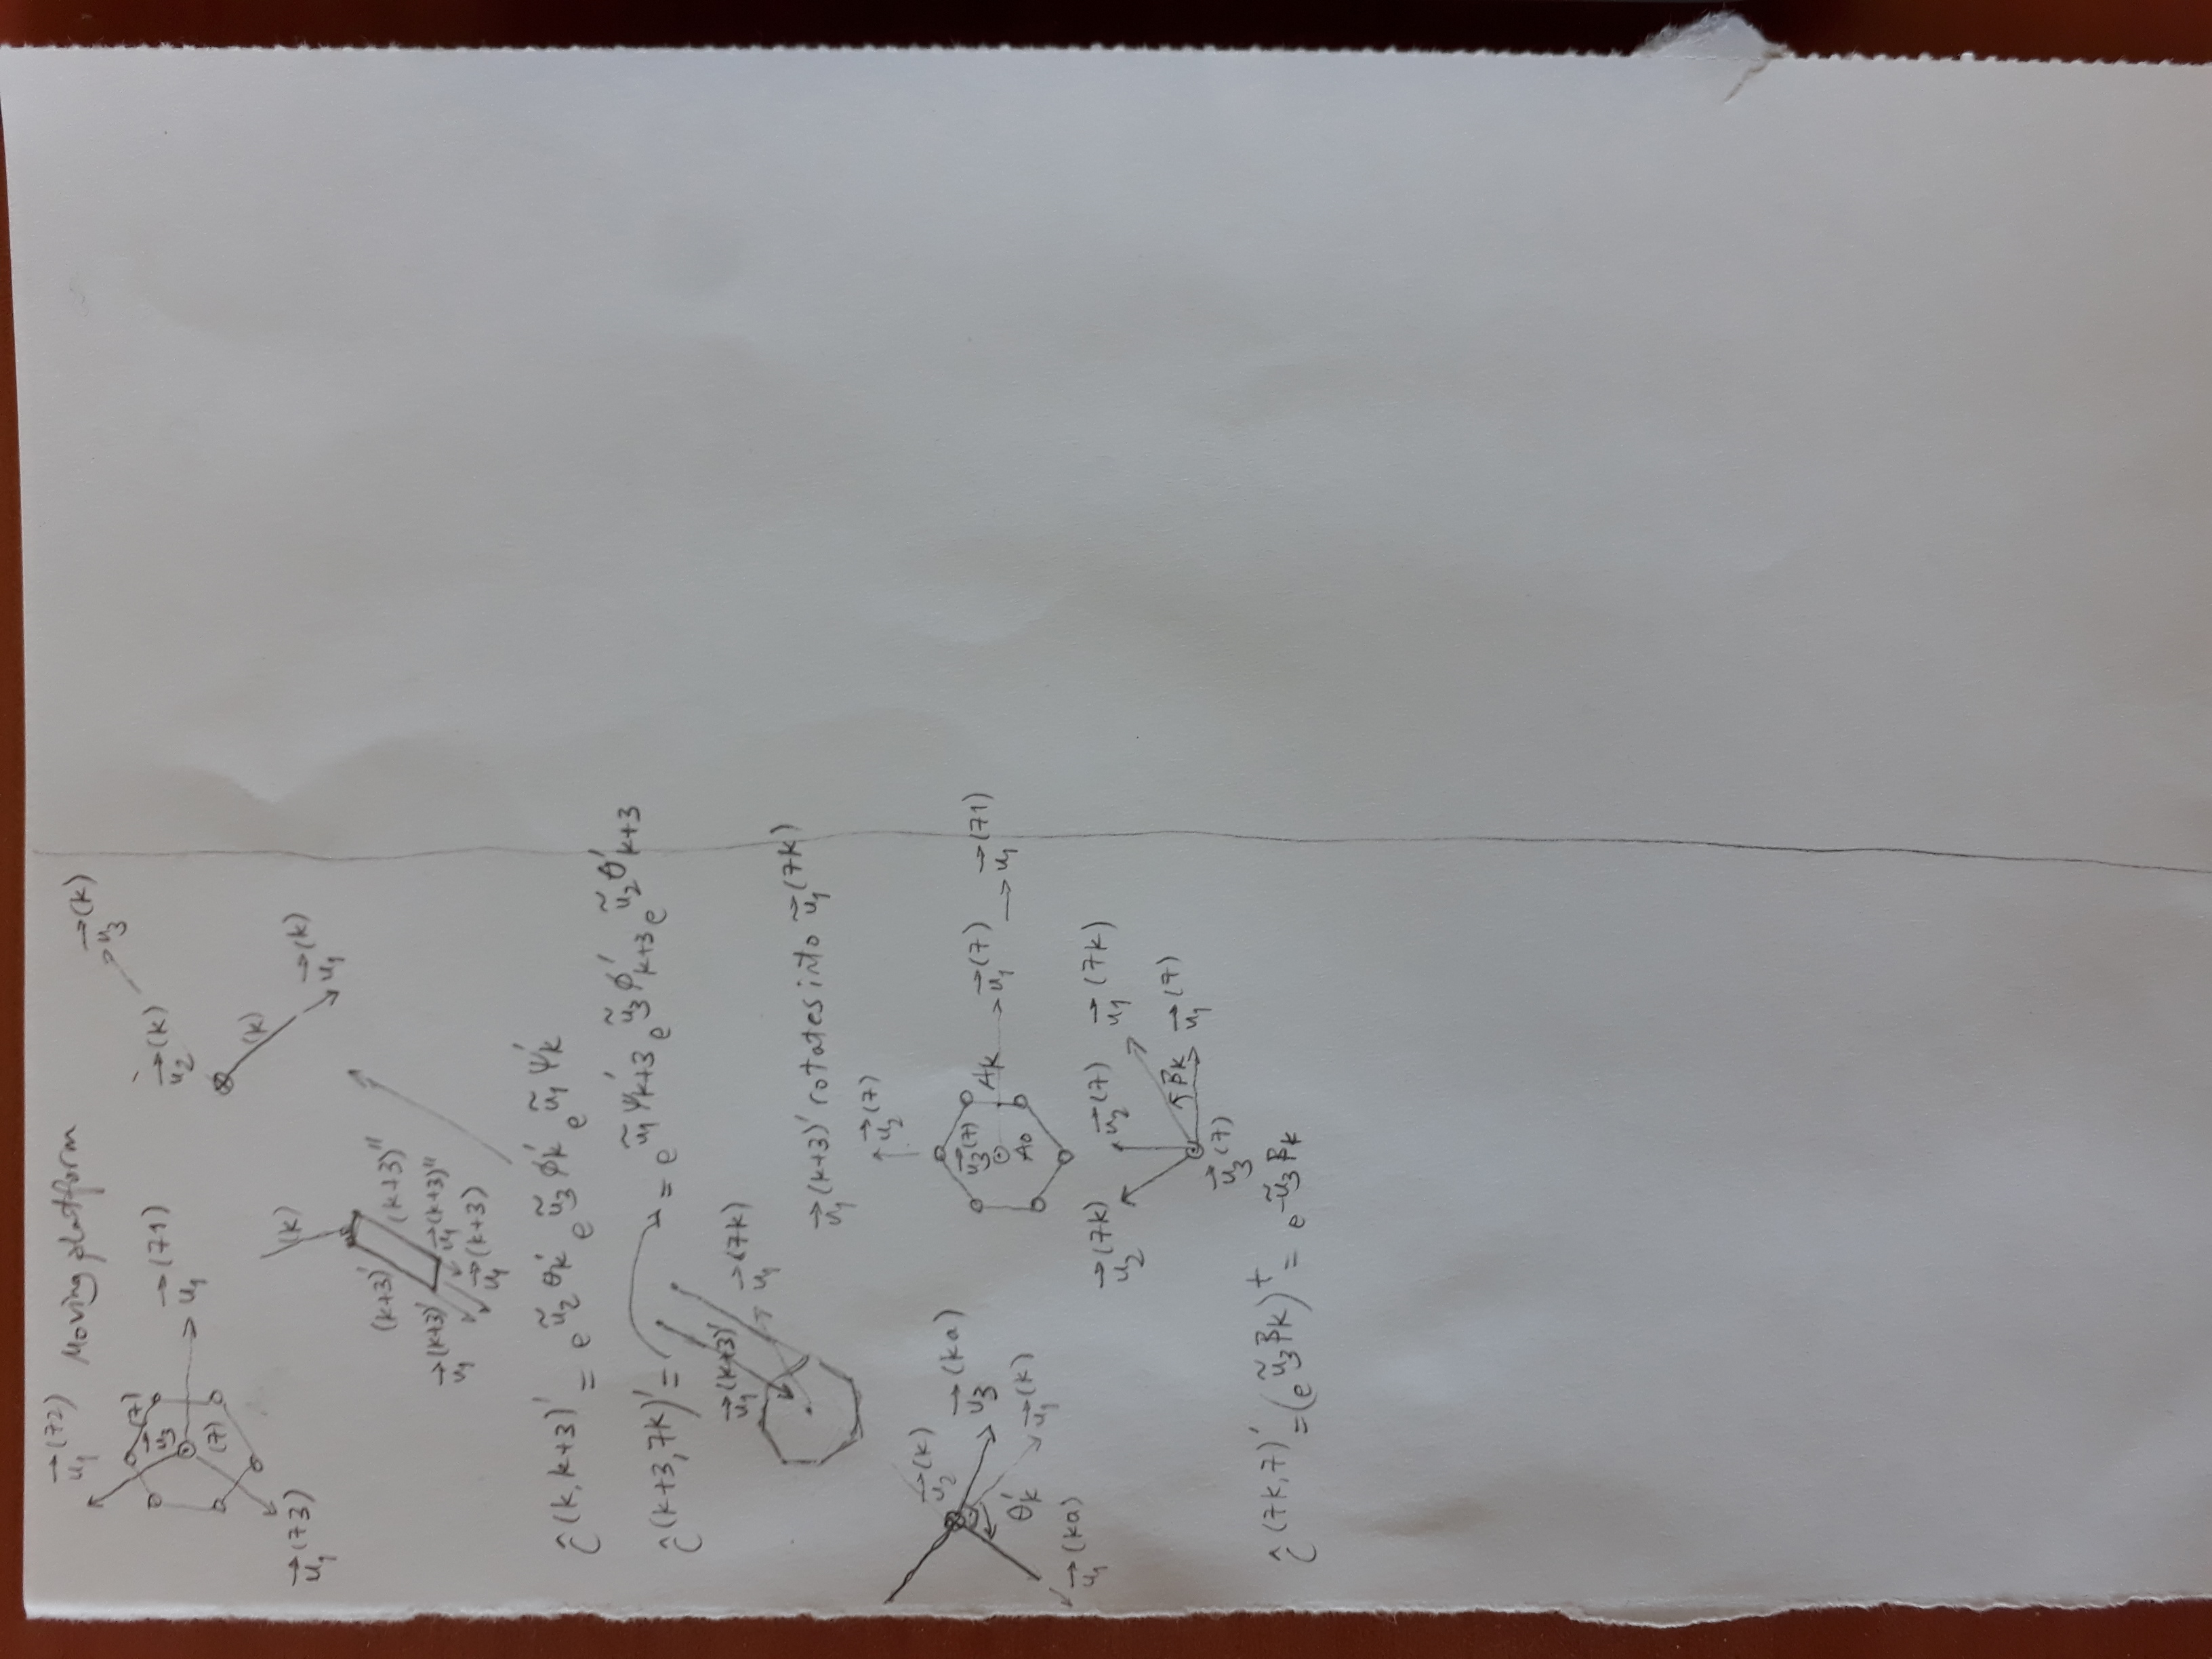 u⃗₁⁽⁷²⁾ Moving platform
(7)
u⃗₃
u⃗₁⁽⁷¹⁾
(7)
u⃗₁⁽⁷³⁾
u⃗₃⁽ᵏ⁾
u⃗₂⁽ᵏ⁾
(k)
u⃗₁⁽ᵏ⁾
(k)
(k+3)' (k+3)''
u⃗₁^(k+3)' u⃗₁^(k+3)''
u⃗₁^(k+3)
Ĉ^(k,k+3)' = e^(ũ₂θ'ₖ) e^(ũ₃ϕ'ₖ) e^(ũ₁ψ'ₖ)
Ĉ^(k+3,7k)' = = e^(ũ₁ψ'ₖ₊₃) e^(ũ₃ϕ'ₖ₊₃) e^(ũ₂θ'ₖ₊₃)
u⃗₁^(k+3)' u⃗₁^(7k)
u⃗₁^(k+3)' rotates into u⃗₁^(7k)
u⃗₂^(k)
u⃗₃^(ka)
θ'ₖ u⃗₁^(k)
u⃗₁^(ka)
u⃗₂^(7)
u⃗₃^(7) Aₖ u⃗₁^(7) → u⃗₁^(71)
A₀
u⃗₂^(7k) u⃗₂^(7) u⃗₁^(7k)
βₖ u⃗₁^(7)
u⃗₃^(7)
Ĉ^(7k,7)' = (e^(ũ₃βₖ))^t = e^(-ũ₃βₖ)